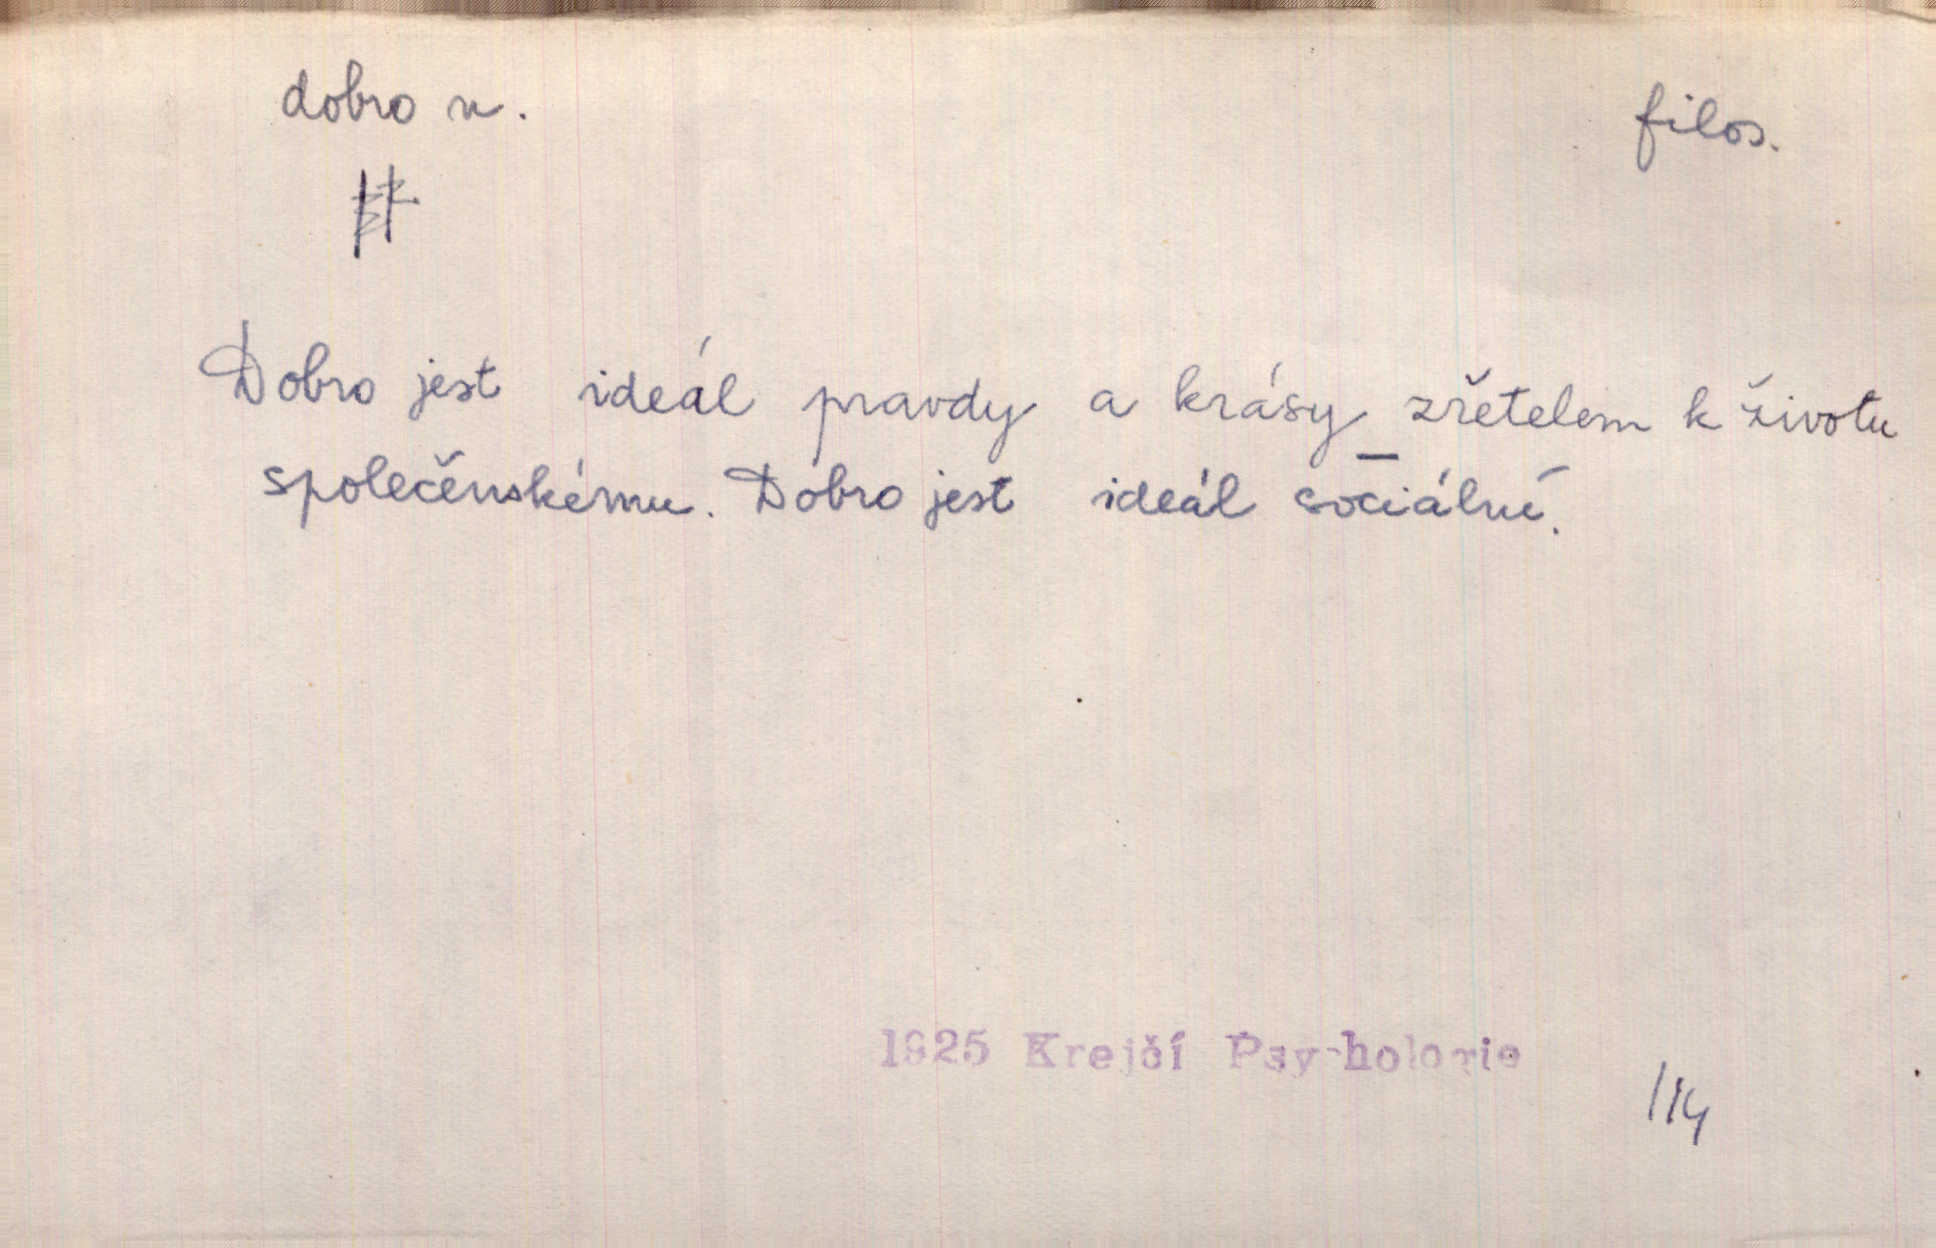 dobro n.
filos.
Dobro jest ideál pravdy a krásy zřetelem k životu
společenskému. Dobro jest ideál sociální.
1925 Krejčí Psychologie
114